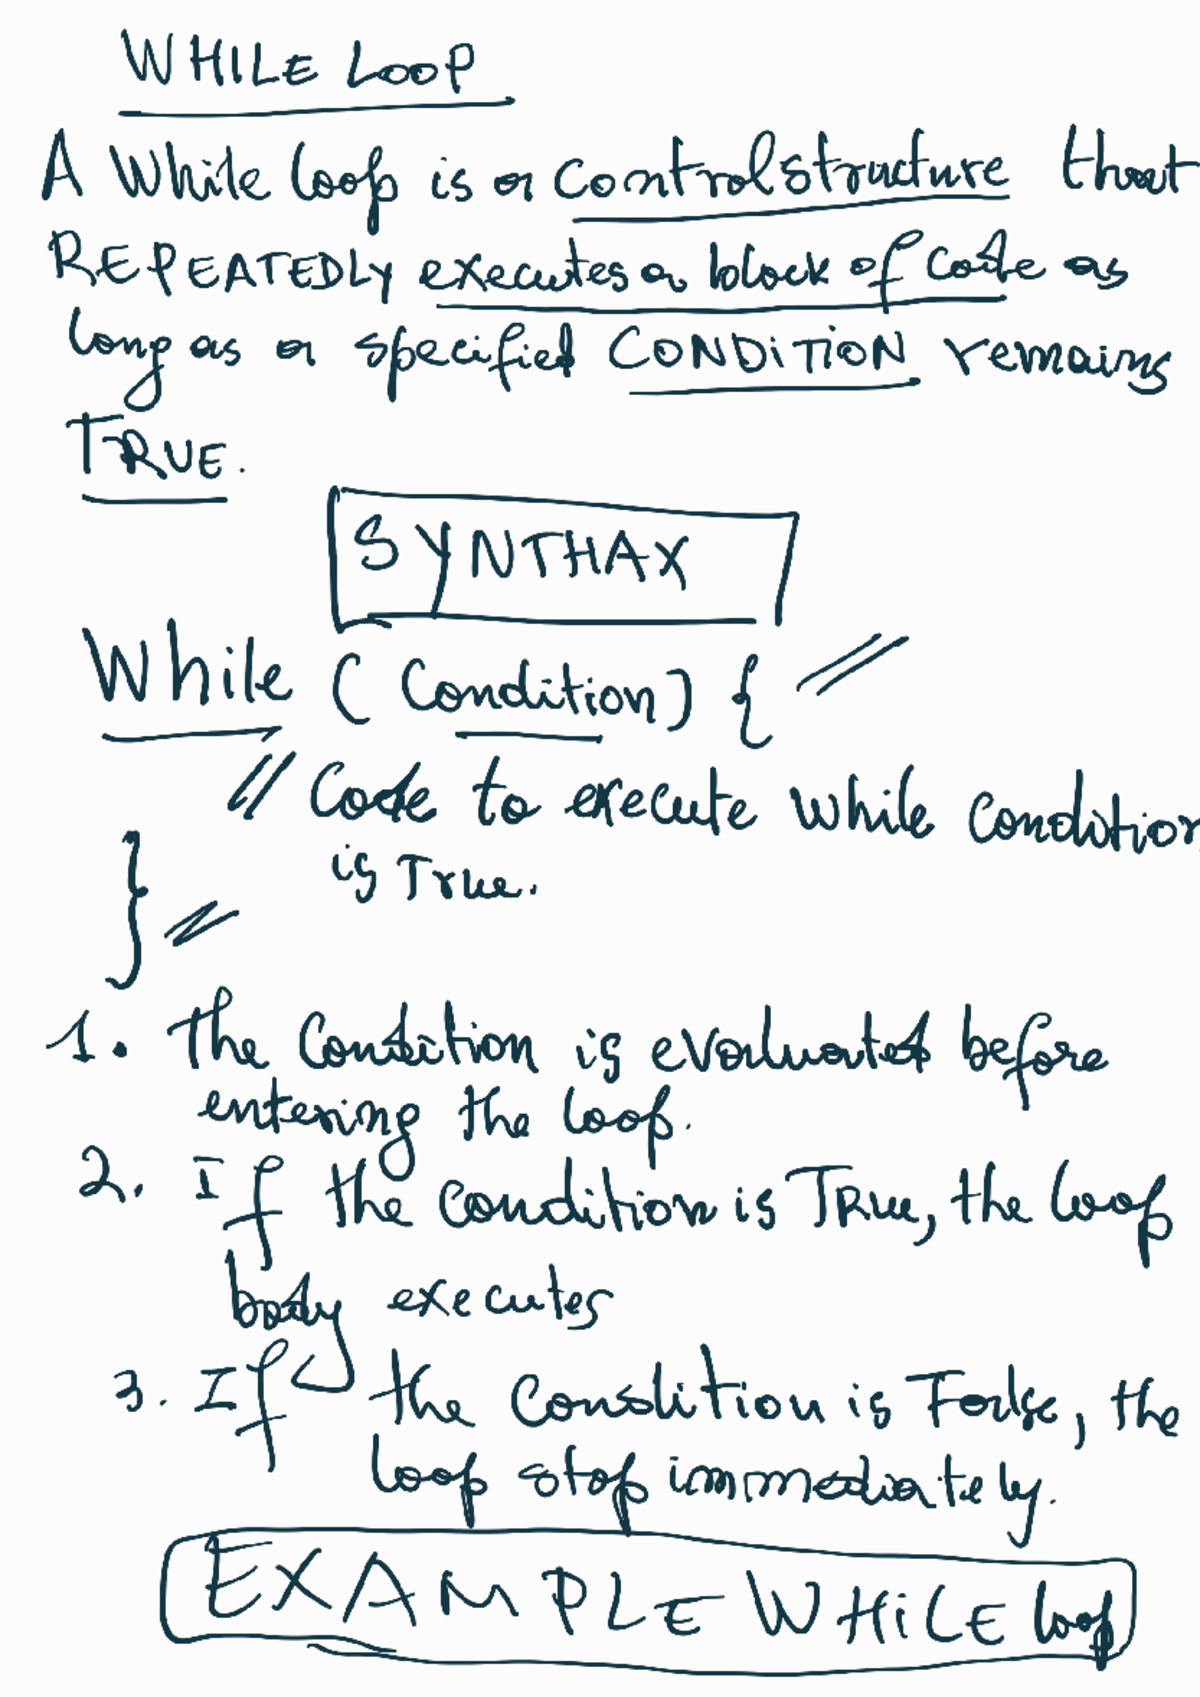 WHILE LOOP
A While loop is a control structure that
REPEATEDLY executes a block of code as
long as a specified CONDITION remains
TRUE.
SYNTHAX
While (Condition) { //
// Code to execute while condition
is True.
} //
1. The Condition is evaluated before
entering the loop.
2. If the condition is TRue, the loop
body executes
3. If the Condition is False, the
loop stop immediately.
EXAMPLE WHILE loop